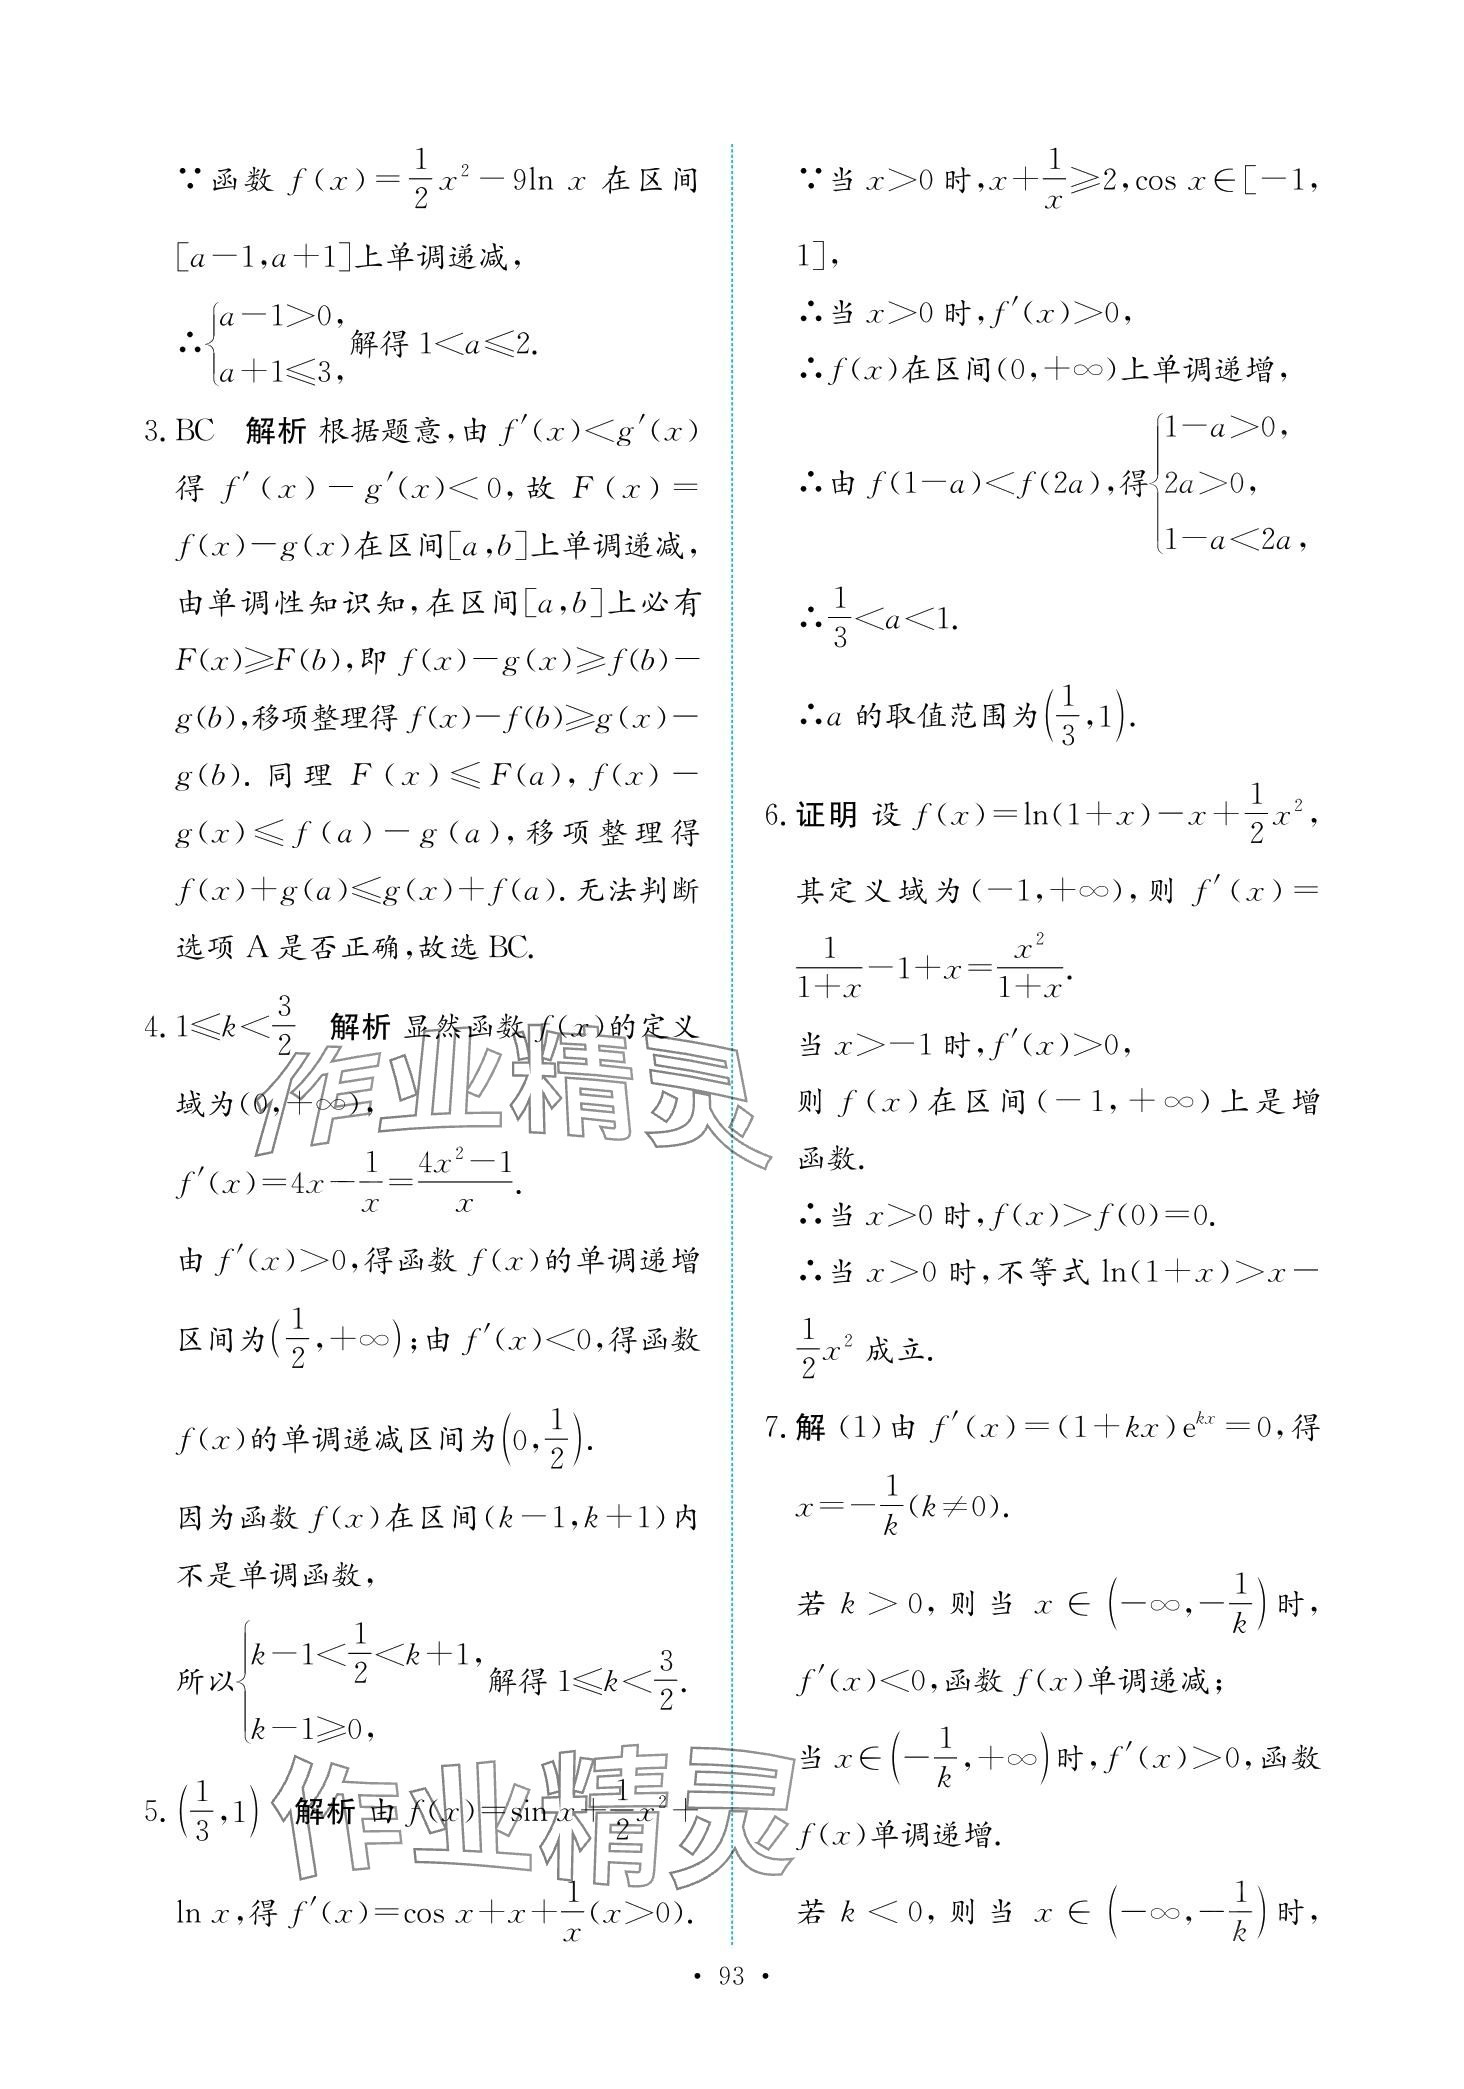 ∵函数 f(x)=\frac{1}{2}x²-9ln x 在区间
[a-1,a+1]上单调递减,
∴{a-1>0, a+1≤3, 解得 1<a≤2.
3. BC 解析 根据题意,由 f′(x)<g′(x)
得 f′(x)-g′(x)<0,故 F(x)=
f(x)-g(x)在区间[a,b]上单调递减,
由单调性知识知,在区间[a,b]上必有
F(x)≥F(b),即 f(x)-g(x)≥f(b)-
g(b),移项整理得 f(x)-f(b)≥g(x)-
g(b). 同理 F(x)≤F(a), f(x)-
g(x)≤f(a)-g(a),移项整理得
f(x)+g(a)≤g(x)+f(a). 无法判断
选项 A 是否正确,故选 BC.
4. 1≤k<\frac{3}{2} 解析 显然函数 f(x)的定义
域为(0,+∞),
f′(x)=4x-\frac{1}{x}=\frac{4x²-1}{x}.
由 f′(x)>0,得函数 f(x)的单调递增
区间为(\frac{1}{2},+∞);由 f′(x)<0,得函数
f(x)的单调递减区间为(0,\frac{1}{2}).
因为函数 f(x)在区间(k-1,k+1)内
不是单调函数,
所以{k-1<\frac{1}{2}<k+1, k-1≥0, 解得 1≤k<\frac{3}{2}.
5. (\frac{1}{3},1) 解析 由 f(x)=sin x+\frac{1}{2}x²+
ln x,得 f′(x)=cos x+x+\frac{1}{x}(x>0).
∵当 x>0 时,x+\frac{1}{x}≥2,cos x∈[-1,
1],
∴当 x>0 时,f′(x)>0,
∴f(x)在区间(0,+∞)上单调递增,
∴由 f(1-a)<f(2a),得{1-a>0, 2a>0, 1-a<2a,
∴\frac{1}{3}<a<1.
∴a 的取值范围为(\frac{1}{3},1).
6. 证明 设 f(x)=ln(1+x)-x+\frac{1}{2}x²,
其定义域为(-1,+∞),则 f′(x)=
\frac{1}{1+x}-1+x=\frac{x²}{1+x}.
当 x>-1 时,f′(x)>0,
则 f(x)在区间(-1,+∞)上是增
函数.
∴当 x>0 时,f(x)>f(0)=0.
∴当 x>0 时,不等式 ln(1+x)>x-
\frac{1}{2}x² 成立.
7. 解 (1)由 f′(x)=(1+kx)e^{kx}=0,得
x=-\frac{1}{k}(k≠0).
若 k>0,则当 x∈(-∞,-\frac{1}{k})时,
f′(x)<0,函数 f(x)单调递减;
当 x∈(-\frac{1}{k},+∞)时,f′(x)>0,函数
f(x)单调递增.
若 k<0,则当 x∈(-∞,-\frac{1}{k})时,
· 93 ·
作业精灵
作业精灵